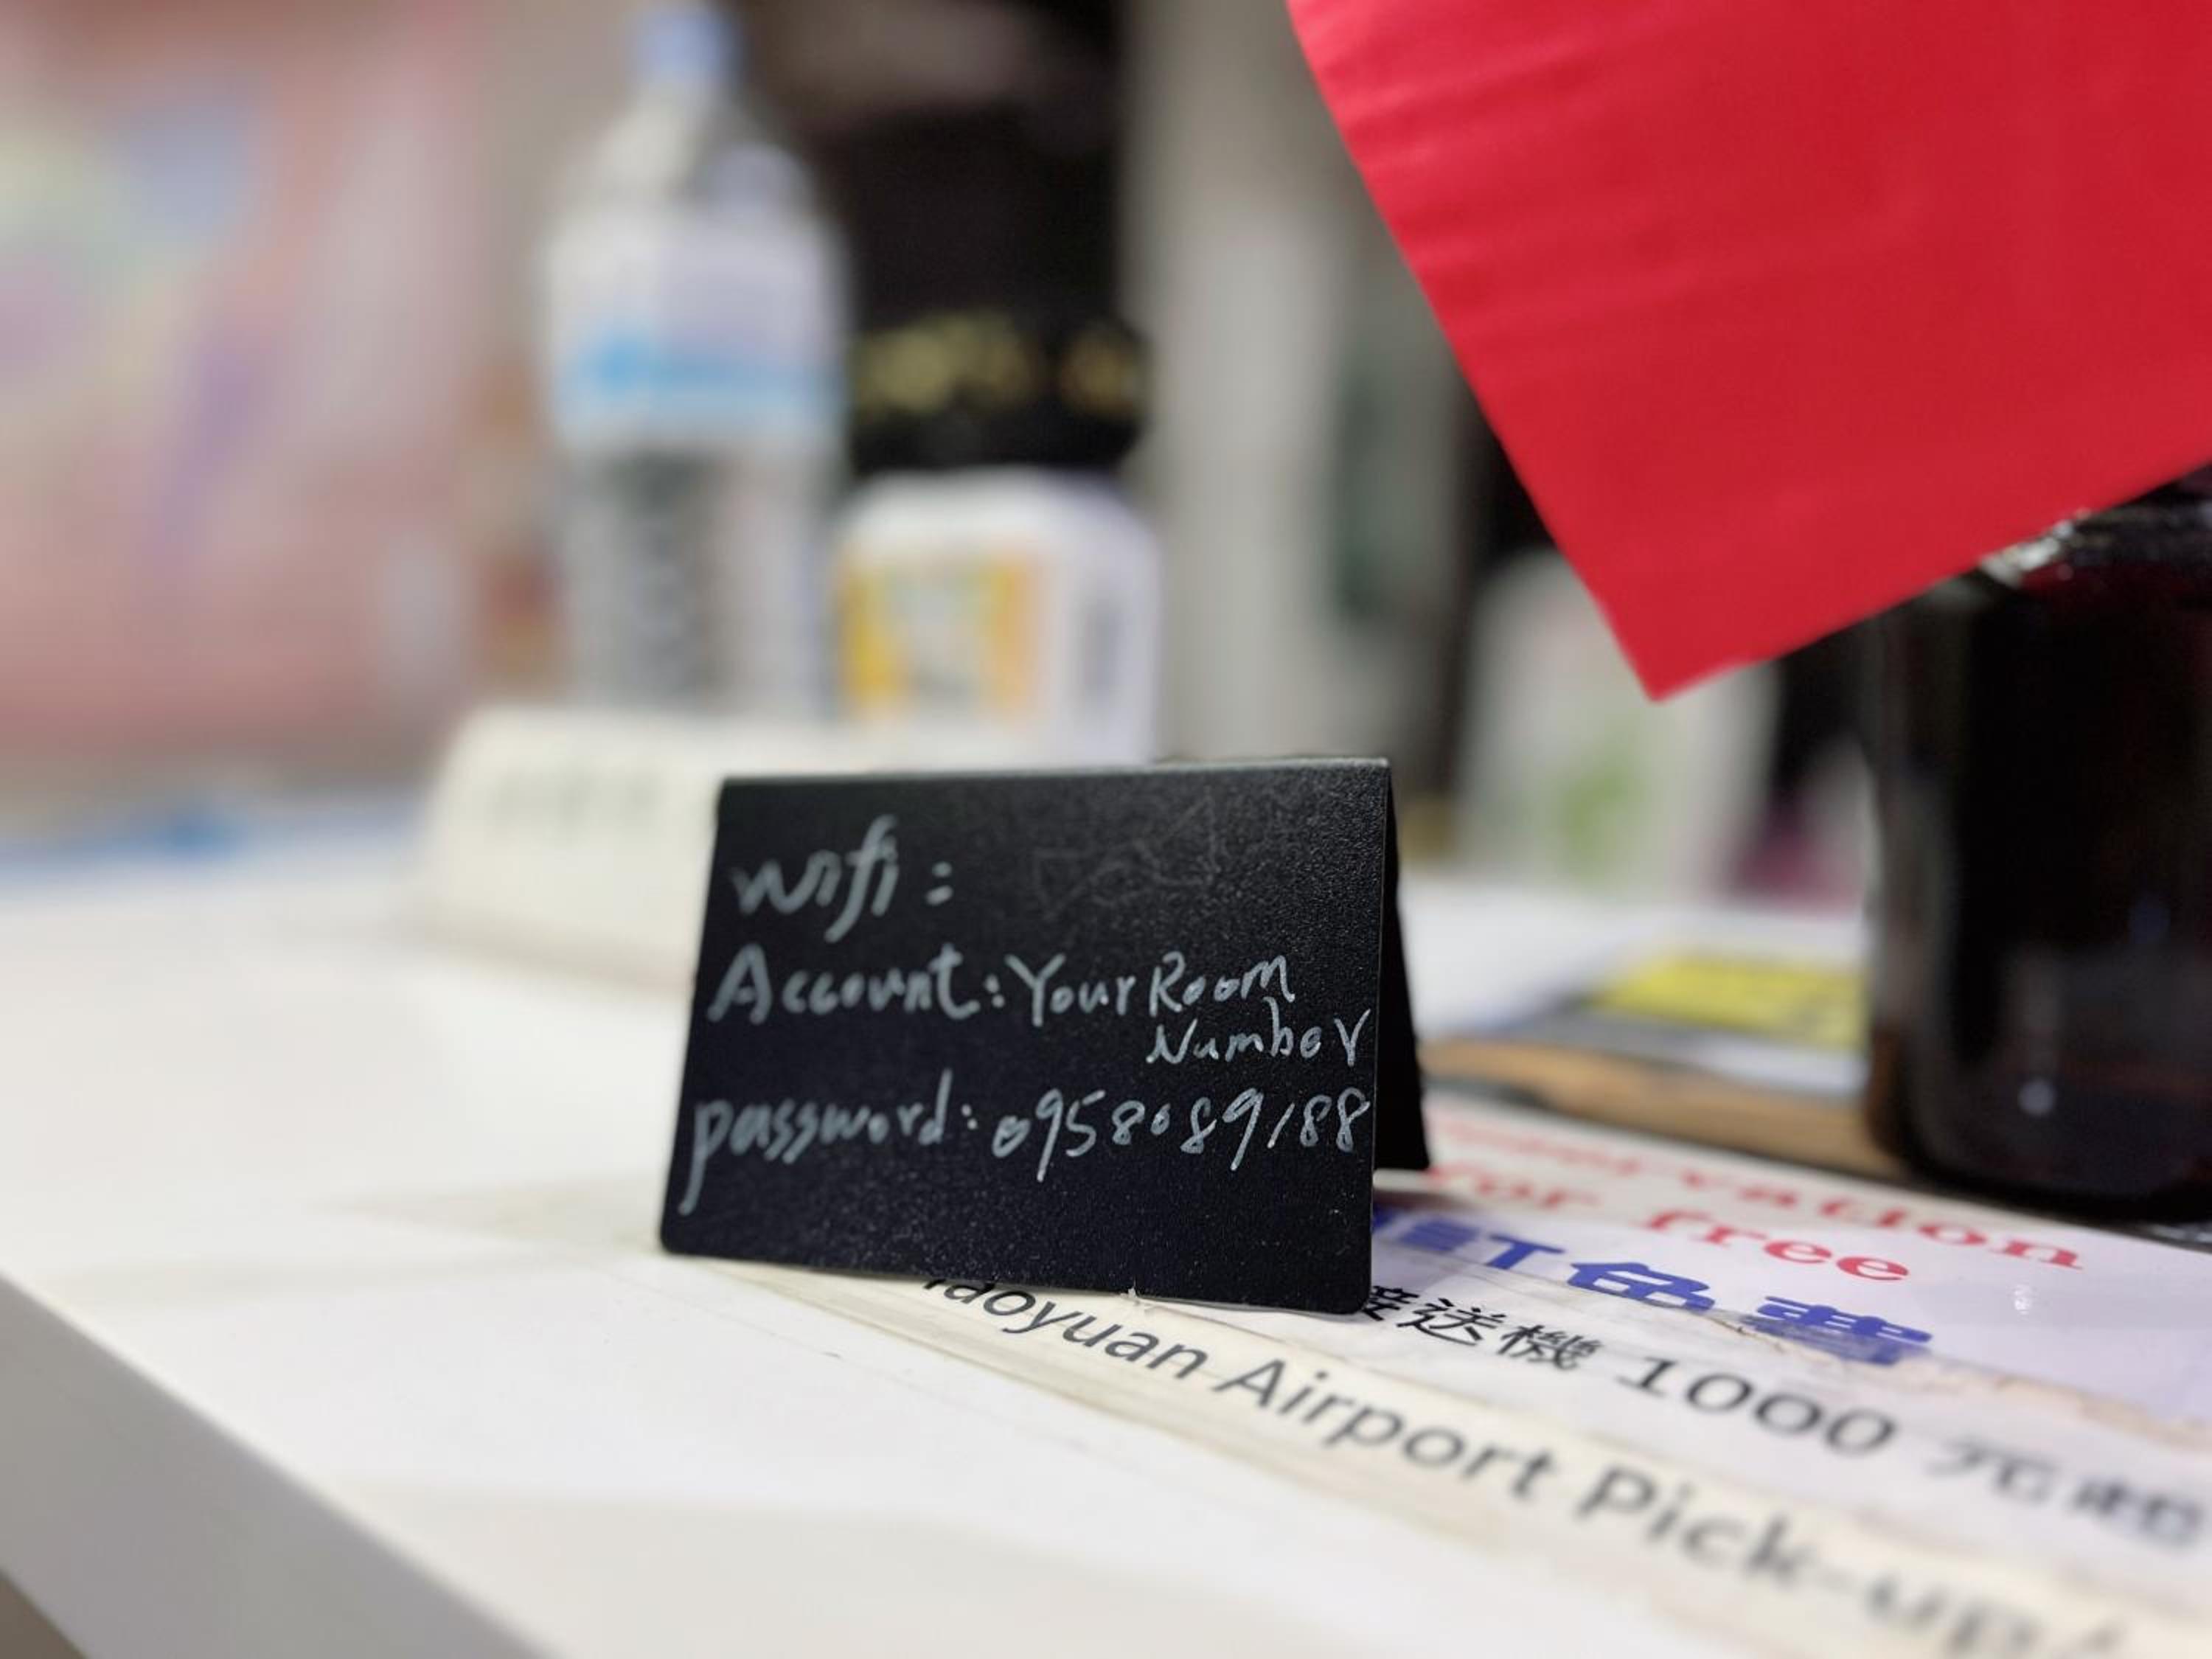 wifi:
Account: Your Room
Number
password: 0958089188
ervation
for free
免費
接送機 1000 元起
Taoyuan Airport Pick-up/